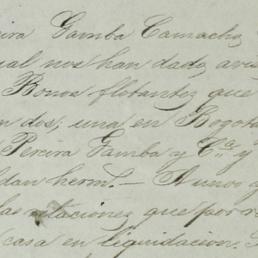 eira Gamba Camacho
ual nos han dado avis
Bonos flotantes que
n dos; una en Bogotá
Pereira Gamba y Cª. y
ldan herm.— Nuevos y
las relaciones que por r
casa en liquidacion.